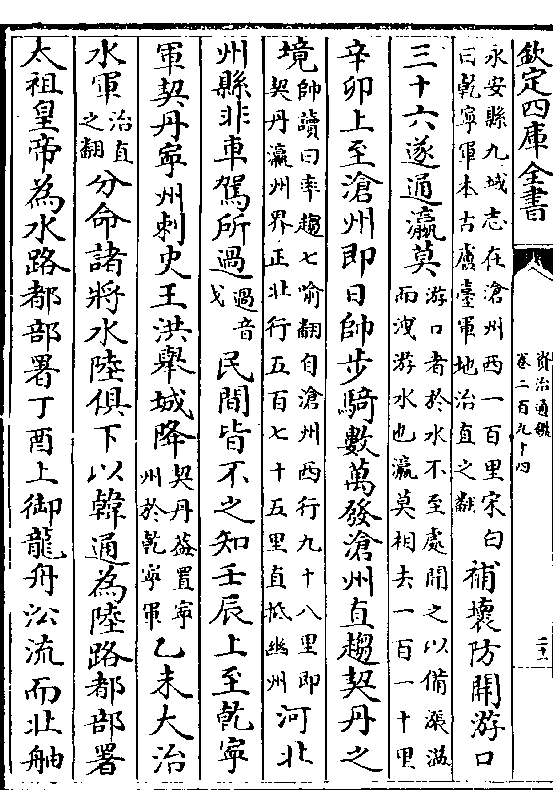 欽定四庫全書
資治通鑑
卷二百九十四
永安縣九城志在滄州西一百里宋白
曰乾寧軍本古盧臺軍地治直之翻
補壞防開游口
三十六遂通瀛莫
游口者於水不至處開之以備漲溢
而洩游水也瀛莫相去一百一十里
辛卯上至滄州即日帥步騎數萬發滄州直趨契丹之
境
帥讀曰率趨七喻翻自滄州西行九十八里即
契丹瀛州界正北行五百七十五里直抵幽州
河北
州縣非車駕所過
過音
戈
民間皆不之知壬辰上至乾寧
軍契丹寧州刺史王洪舉城降
契丹葢置寧
州於乾寧軍
乙未大治
水軍
治直
之翻
分命諸將水陸俱下以韓通為陸路都部署
太祖皇帝為水路都部署丁酉上御龍舟㳂流而北舳